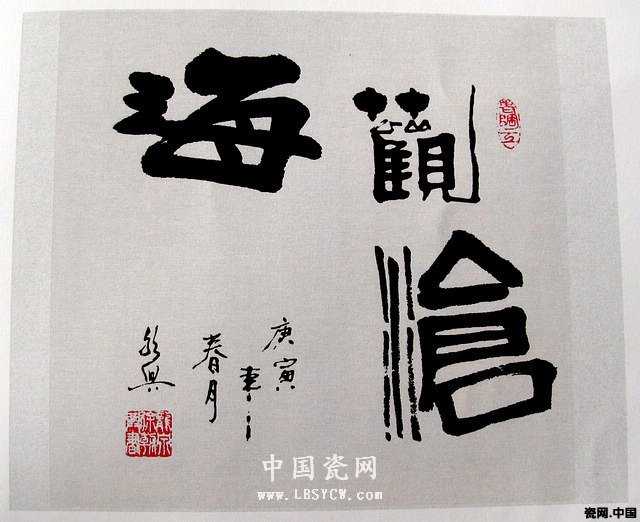 觀滄
海
庚寅
春月
中国瓷网
www.LBSYCW.com
瓷网.中国